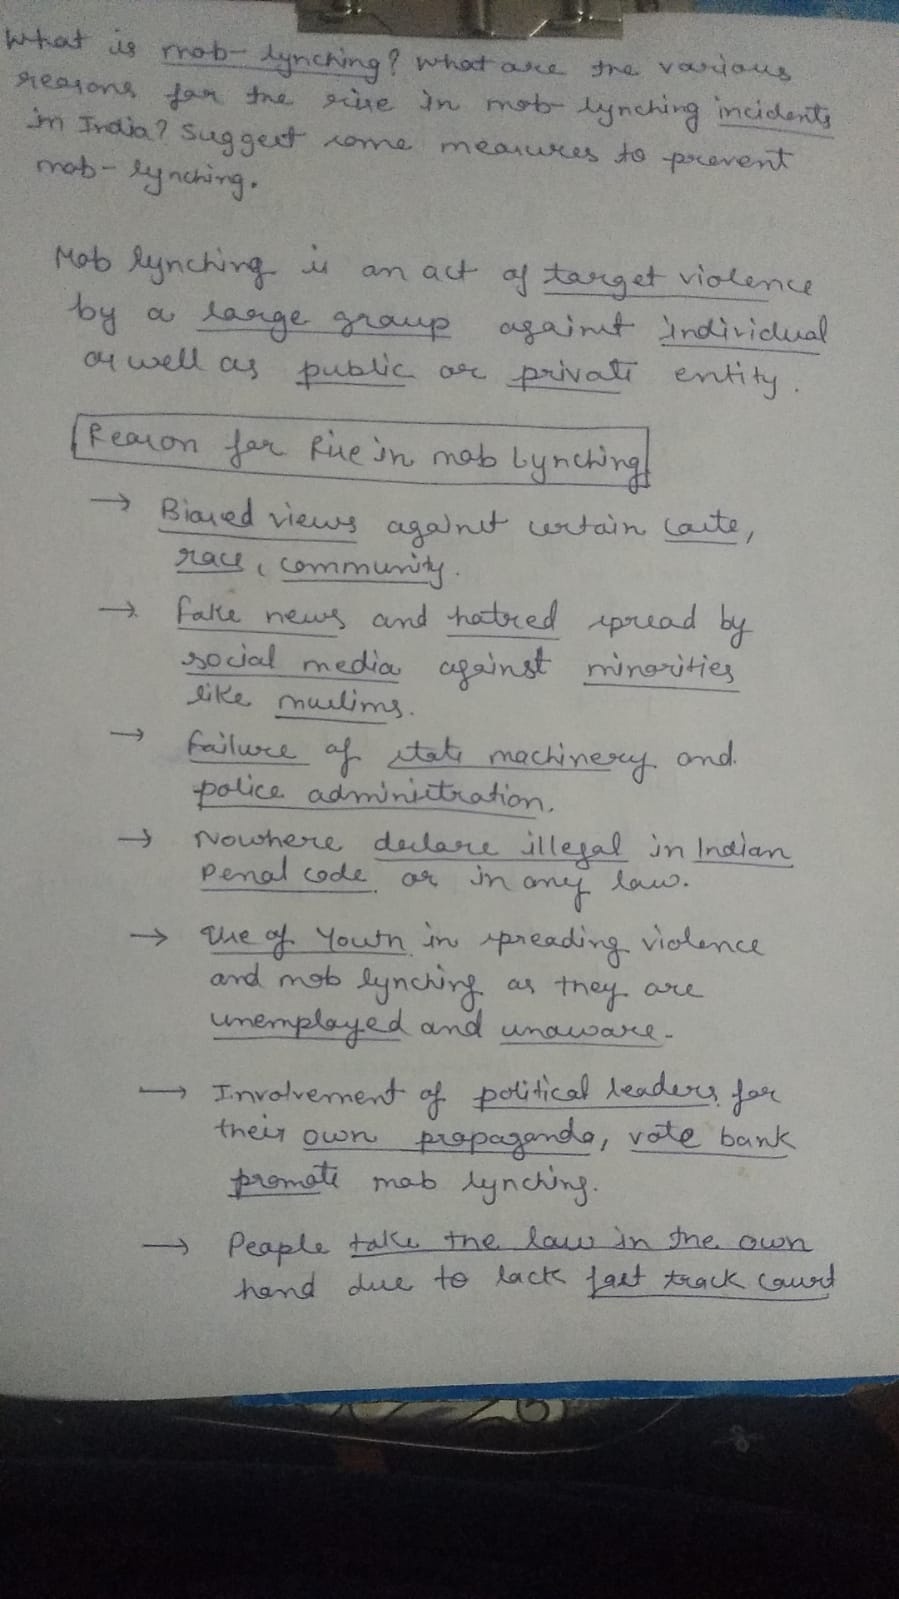 What is mob-lynching? What are the various
reasons for the rise in mob lynching incidents
in India? Suggest some measures to prevent
mob-lynching.
Mob lynching is an act of target violence
by a large group against individual
as well as public or private entity.
Reason for Rise in mob Lynching
→ Biased views against certain caste,
race, community.
→ Fake news and hatred spread by
social media against minorities
like muslims.
→ Failure of state machinery and
police administration.
→ Nowhere declare illegal in Indian
Penal code or in any law.
→ Use of Youth in spreading violence
and mob lynching as they are
unemployed and unaware.
→ Involvement of political leaders for
their own propaganda, vote bank
promote mob lynching.
→ People take the law in the own
hand due to lack fast track court